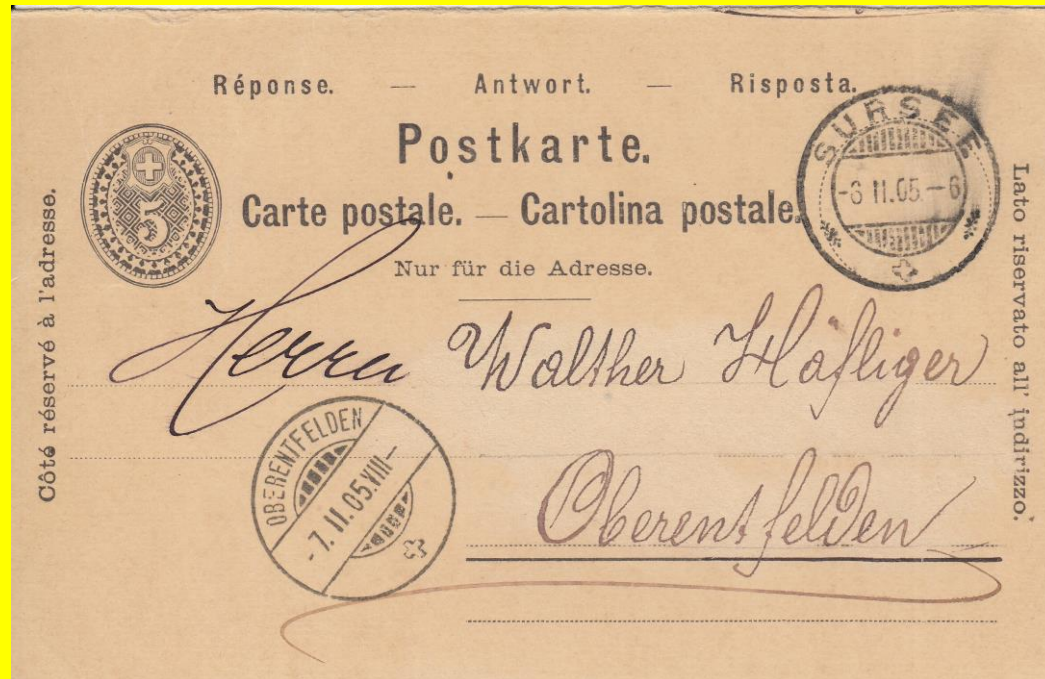 Réponse. — Antwort. — Risposta.
Postkarte.
Carte postale. — Cartolina postale.
Nur für die Adresse.
Côté réservé à l'adresse.
Lato riservato all' indirizzo.
5
SURSEE
-6 II.05.-6
Herrn Walther Häfliger
OBERENTFELDEN
-7.II.05.VIII-
Oberentfelden